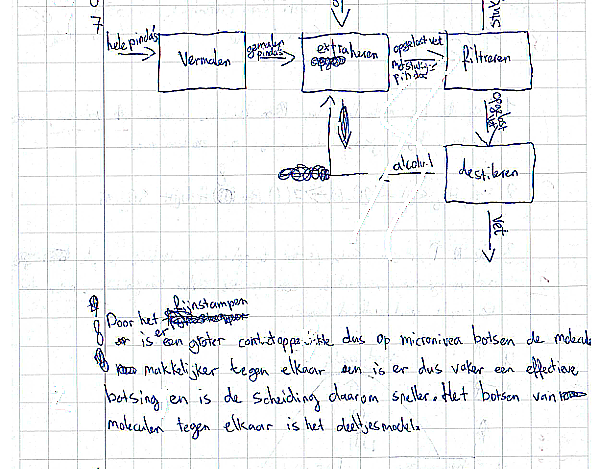 7
hele pinda's
Vermalen
gemalen pinda's
extraheren
opgelost vet
pinda
filtreren
opgelost vet
alcohol
destileren
vet
8
Door het fijnstampen
er is er een groter contactoppervlakte dus op microniveau botsen de molecule
makkelijker tegen elkaar en is er dus vaker een effectieve
botsing en is de scheiding daarom sneller. Het botsen van
moleculen tegen elkaar is het deeltjesmodel.